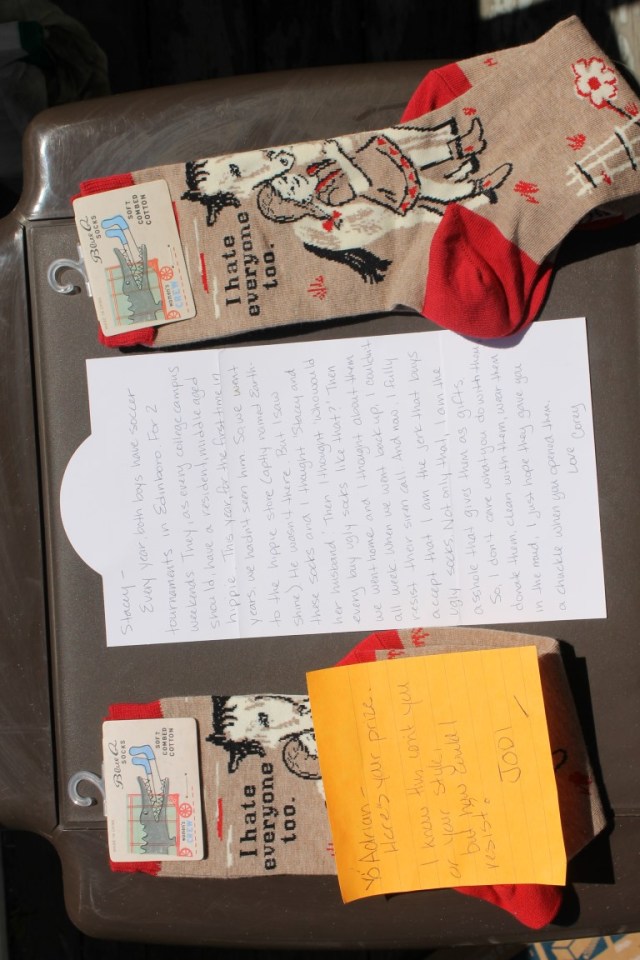 Blue Q
SOCKS
SOFT
COMBED
COTTON
WOMEN'S
CREW
I hate
everyone
too.
Yo Adrian-
Here's your prize.
I know this you
or your style,
but how could I
resist.
JODI
Stacey -
Every year both boys have soccer
tournaments in Edinboro for 2
weekends. They, as every college campus
should, have a resident, middle aged
hippie. This year, for the first time in
years we hadn't seen him. So we went
to the hippie store (aptly named Earth-
shine) He wasn't there. But I saw
these socks and I thought "Stacey and
her husband. Then I thought "who would
every buy ugly socks like that?" Then
we went home and I thought about them
all week. When we went back up, I couldn't
resist their siren call. And now I fully
accept that I am the jerk that buys
ugly socks. Not only that, I am the
asshole that gives them as gifts.
So, I don't care what you do with them
donate them, clean with them, wear them
in the mud. I just hope they gave you
a chuckle when you opened them.
Love Corey
Blue Q
SOCKS
SOFT
COMBED
COTTON
WOMEN'S
CREW
I hate
everyone
too.